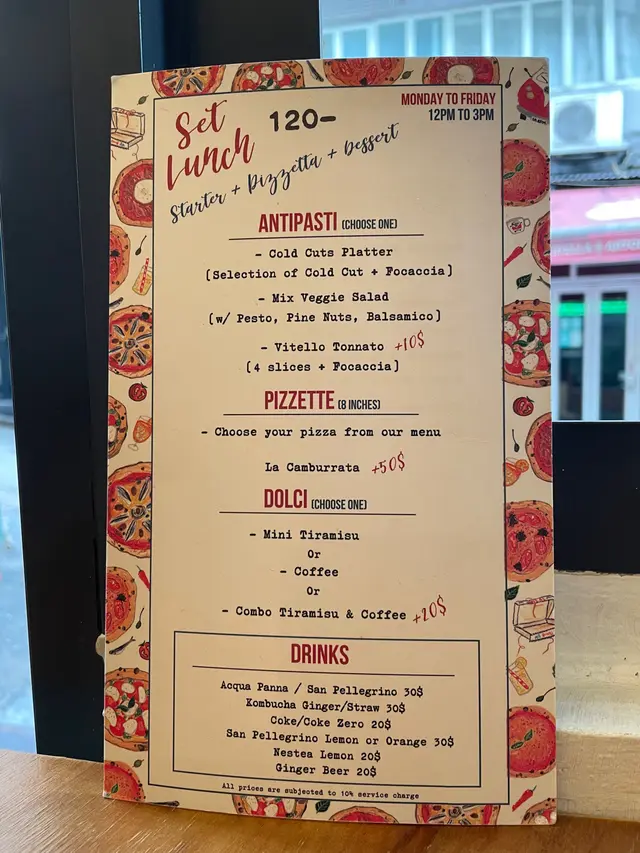 Set Lunch
120-
MONDAY TO FRIDAY
12PM TO 3PM
Starter + Pizzetta + Dessert
ANTIPASTI (CHOOSE ONE)
- Cold Cuts Platter
(Selection of Cold Cut + Focaccia)
- Mix Veggie Salad
(w/ Pesto, Pine Nuts, Balsamico)
- Vitello Tonnato +10$
(4 slices + Focaccia)
PIZZETTE (8 INCHES)
- Choose your pizza from our menu
La Camburrata +50$
DOLCI (CHOOSE ONE)
- Mini Tiramisu
Or
- Coffee
Or
- Combo Tiramisu & Coffee +20$
DRINKS
Acqua Panna / San Pellegrino 30$
Kombucha Ginger/Straw 30$
Coke/Coke Zero 20$
San Pellegrino Lemon or Orange 30$
Nestea Lemon 20$
Ginger Beer 20$
All prices are subjected to 10% service charge